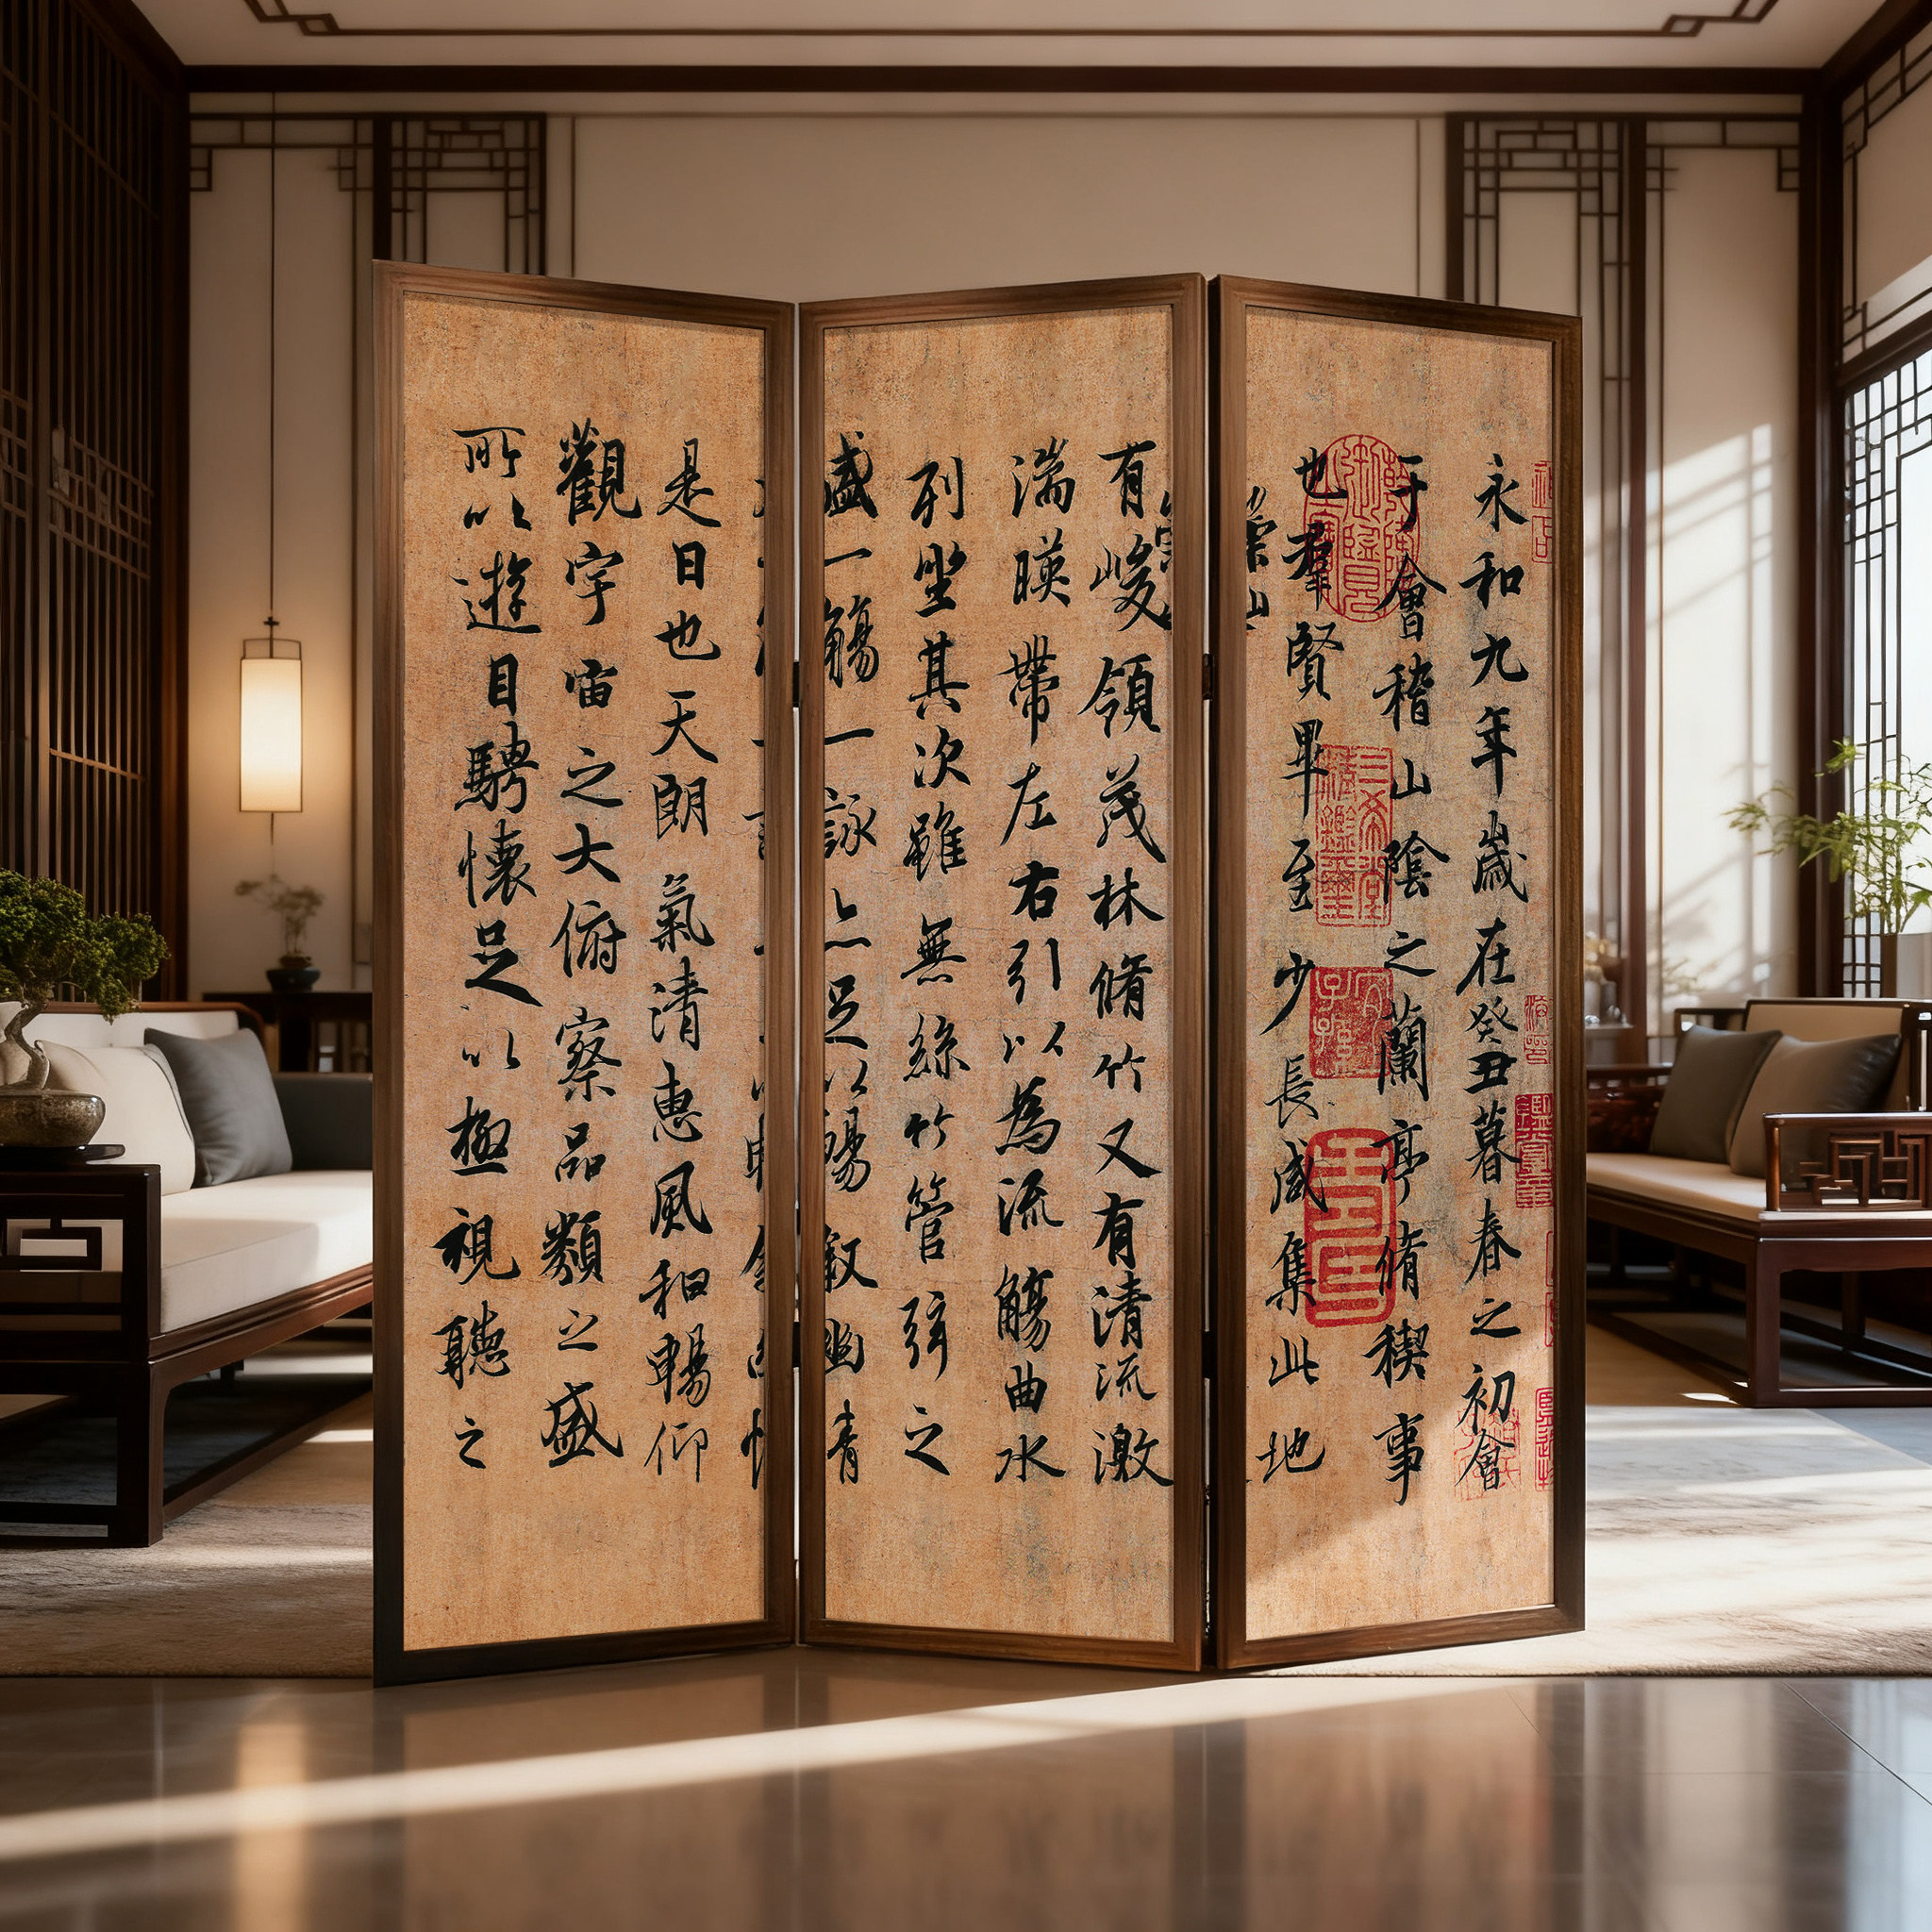 永和九年歲在癸丑暮春之初會
于會稽山陰之蘭亭脩禊事
也羣賢畢至少長咸集此地
崇山
有峻領茂林脩竹又有清流激
湍暎帶左右引以為流觴曲水
列坐其次雖無絲竹管弦之
盛一觴一詠亦足以暢叙幽情
是日也天朗氣清惠風和暢仰
觀宇宙之大俯察品類之盛
所以遊目騁懷足以極視聽之